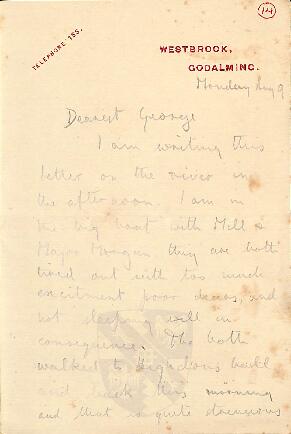 14
TELEPHONE 155.
WESTBROOK,
GODALMING.
Monday Aug 9
Dearest George
I am writing this
letter on the river in
the afternoon. I am in
the big boat with Mill &
Major Morgan they are both
tired out with too much
excitment poor dears, and
not sleeping well in
consequence. The both
walked to Highdons back
and back this morning
and that is quite strenuous